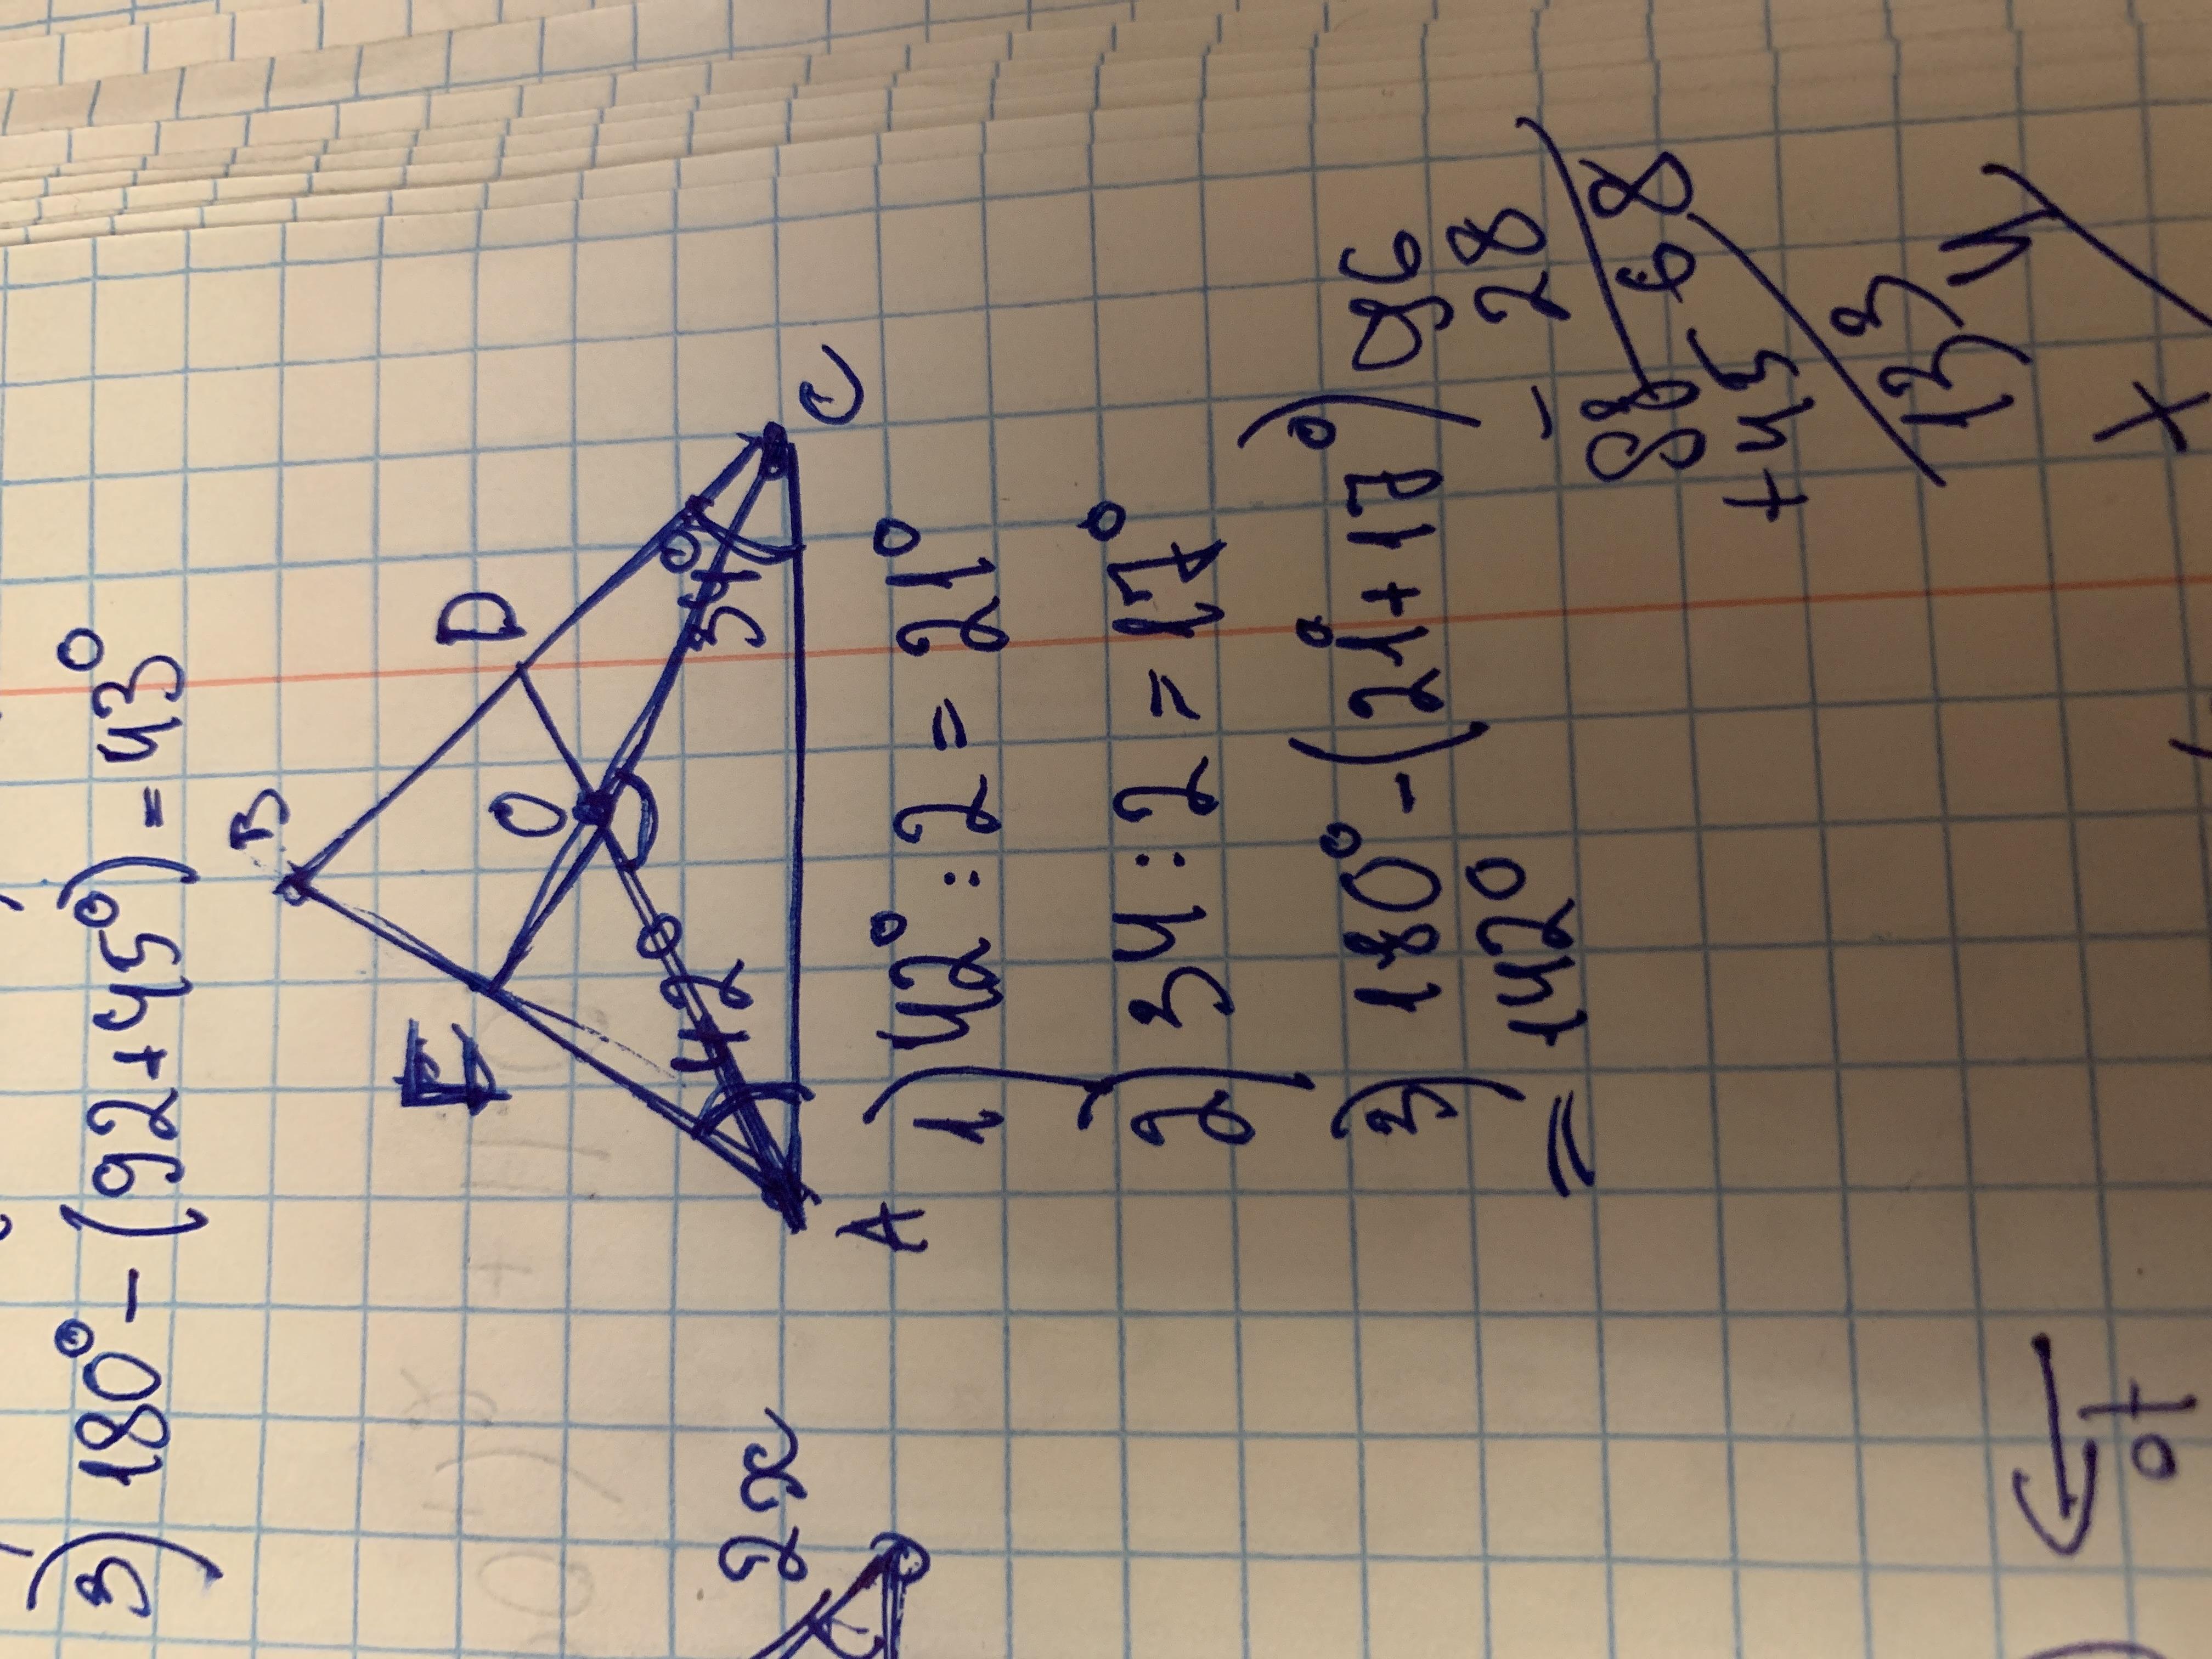 3) 180° - (92 + 45°) = 43°
B
D
O
E
42°
34°
A
C
2x
1) 42° : 2 = 21°
2) 34 : 2 = 17°
3) 180° - (21° + 17°)
= 142°
96
- 28
68
88
+ 45
133
4
x